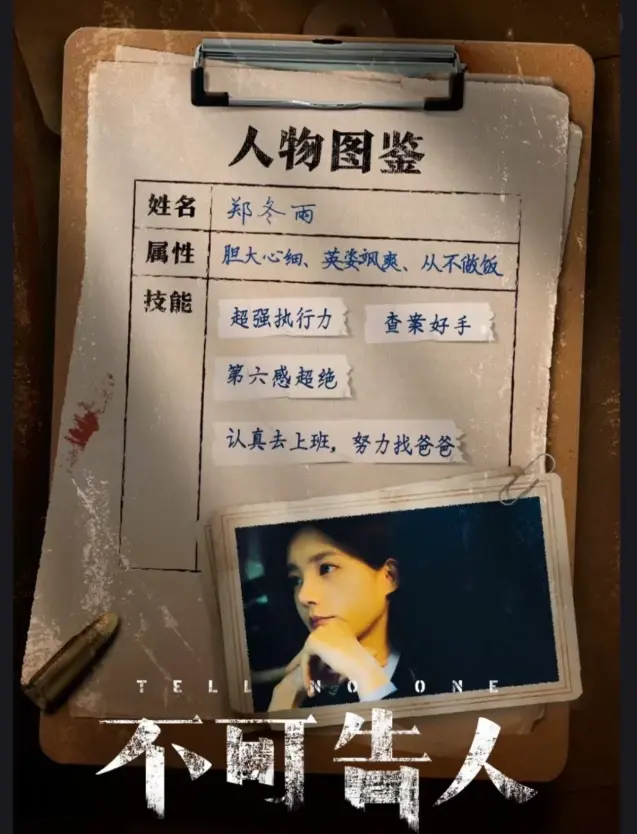 人物图鉴
姓名 郑冬雨
属性 胆大心细、英姿飒爽、从不做饭
技能 超强执行力 查案好手
第六感超绝
认真去上班，努力找爸爸
TELL NO ONE
不可告人